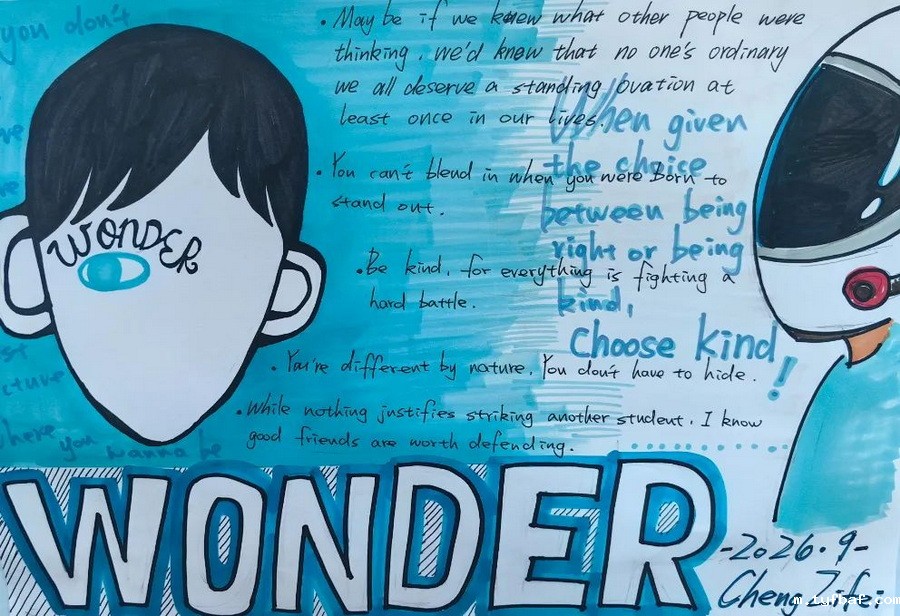 you don't
WONDER
• May be if we knew what other people were
thinking, we'd knew that no one's ordinary
we all deserve a standing ovation at
least once in our lives.
• You can't blend in when you were Born to
stand out.
• Be kind, for everything is fighting a
hard battle.
• You're different by nature, You don't have to hide.
• While nothing justifies striking another student, I know
good friends are worth defending.
When given
the choice
between being
right or being
kind,
Choose kind!
where you
wanna be
WONDER
-2026.9-